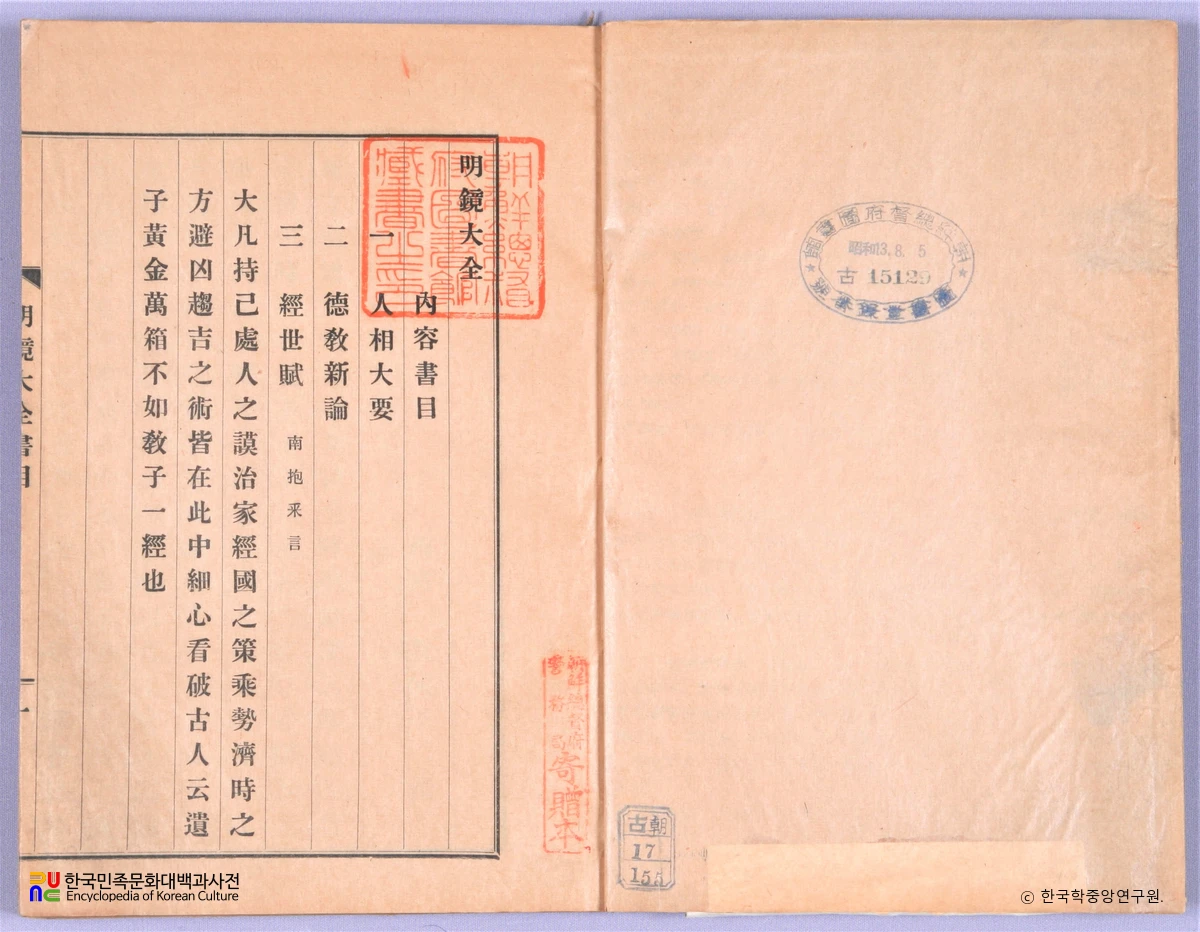 明鏡大全
內容書目
一 人相大要
二 德敎新論
三 經世賦 南抱釆言
大凡持己處人之謨治家經國之策乘勢濟時之
方避凶趨吉之術皆在此中細心看破古人云遺
子黃金萬箱不如敎子一經也
明鏡大全書目
一
朝鮮總督
府圖書館
藏書之印
朝鮮總督府
寄贈本
昭和13. 8. 5
古 15129
古朝
17
155
한국민족문화대백과사전
Encyclopedia of Korean Culture
ⓒ 한국학중앙연구원.